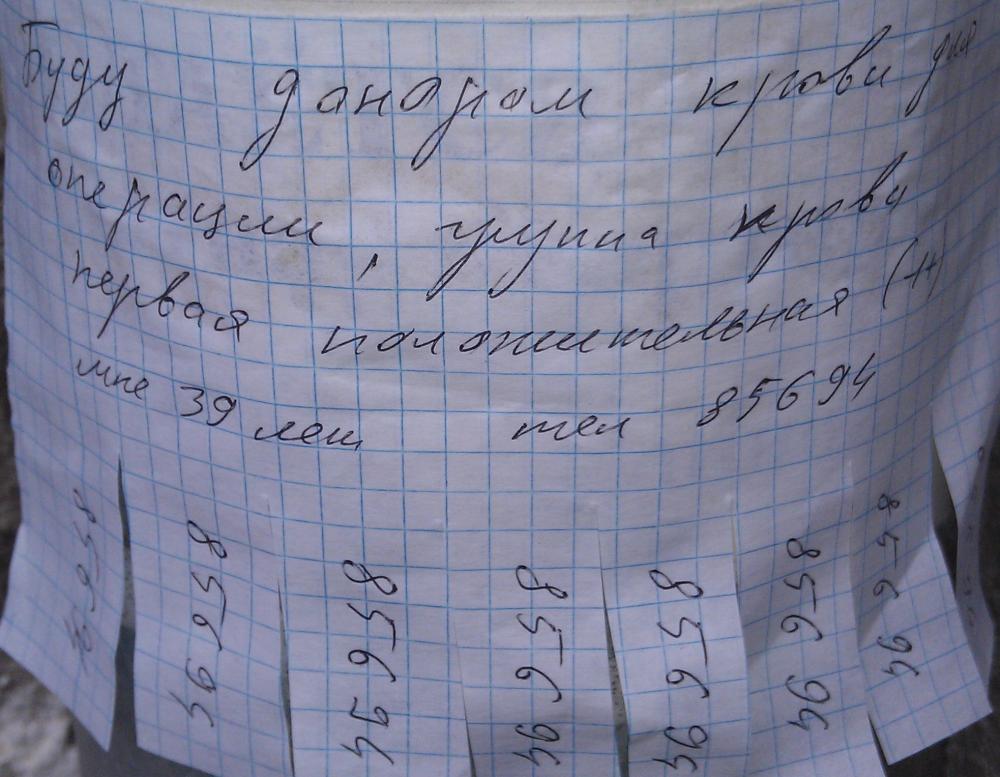 Буду донором крови для
операции, группа крови
первая положительная (I+)
мне 39 лет тел 85694
85694
85694
85694
85694
85694
85694
85694